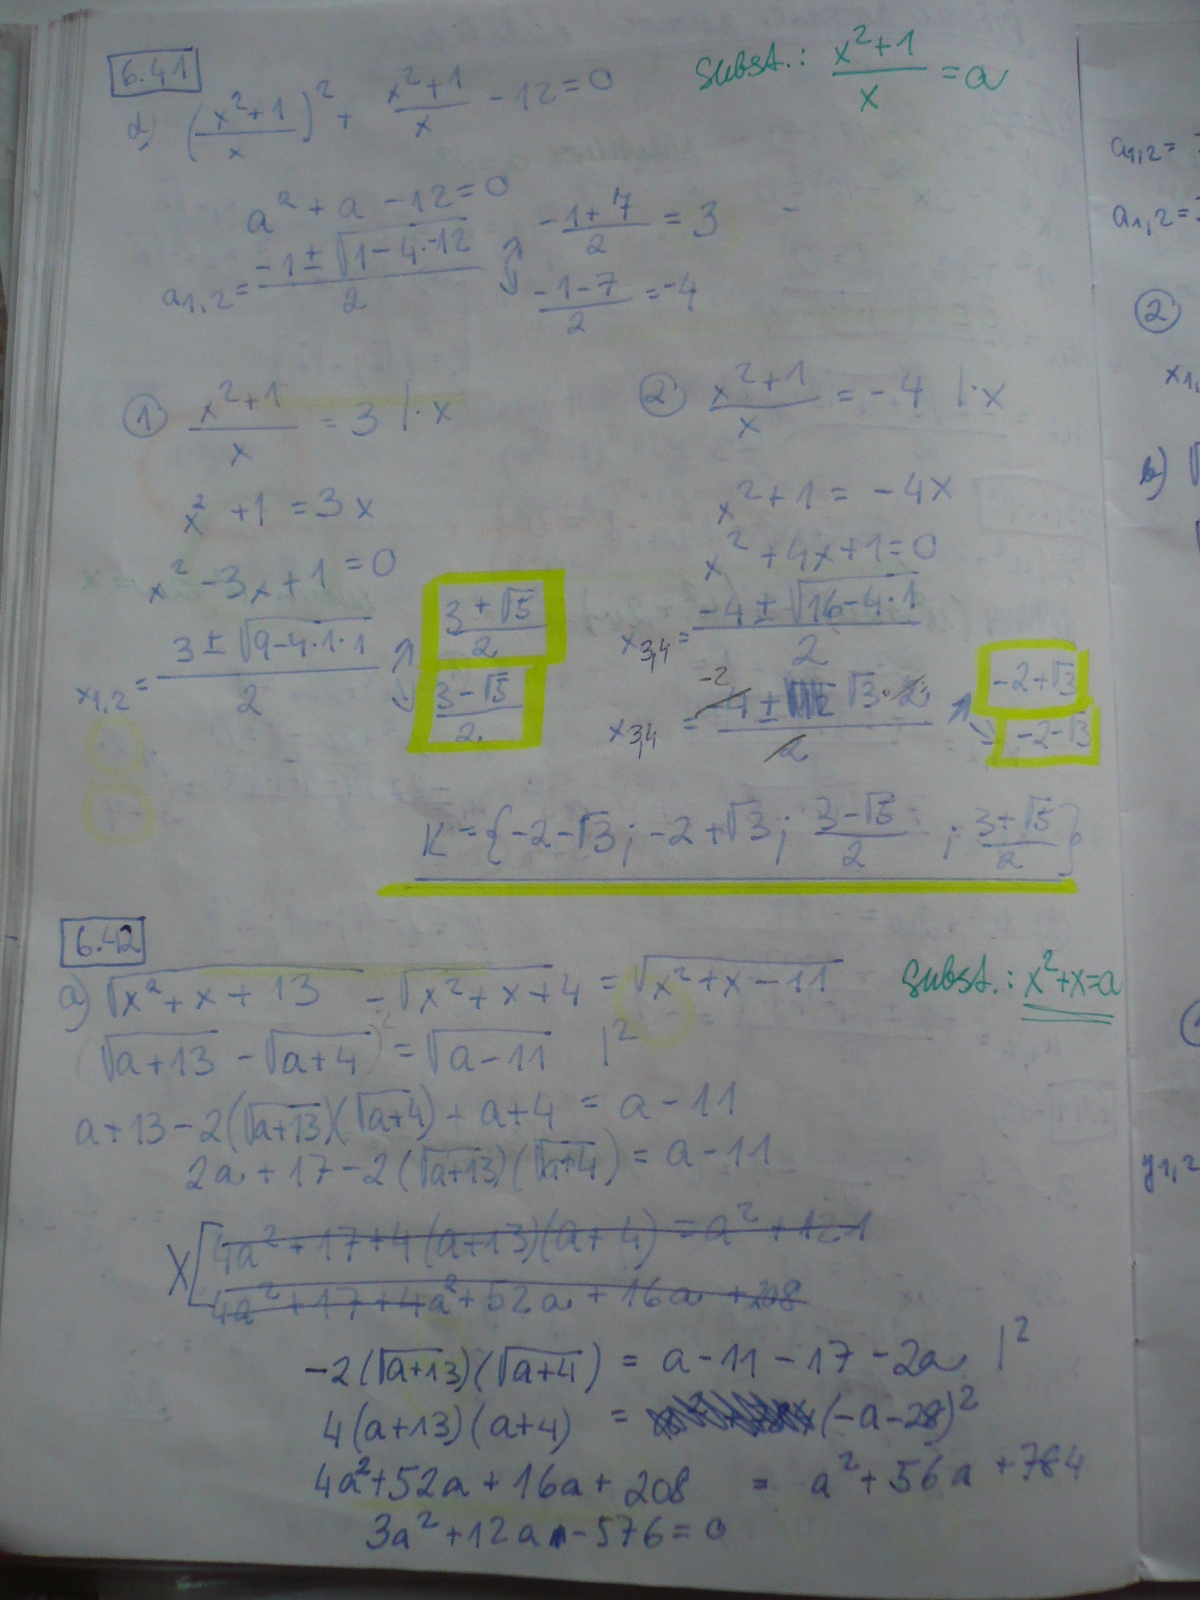 6.41
Subst.: (x²+1)/x = a
d) ((x²+1)/x)² + (x²+1)/x - 12 = 0
a² + a - 12 = 0
a1,2 = (-1 ± √(1-4·-12))/2
(-1+7)/2 = 3
(-1-7)/2 = -4
① (x²+1)/x = 3 /·x
x² + 1 = 3x
x² - 3x + 1 = 0
x1,2 = (3 ± √(9-4·1·1))/2
(3+√5)/2
(3-√5)/2
② (x²+1)/x = -4 /·x
x² + 1 = -4x
x² + 4x + 1 = 0
x3,4 = (-4 ± √(16-4·1))/2
-2
x3,4 = (-4 ± √3·2)/2
-2+√3
-2-√3
K = {-2-√3; -2+√3; (3-√5)/2; (3+√5)/2}
6.42
a) √(x²+x+13) - √(x²+x+4) = √(x²+x-11)
Subst.: x²+x=a
(√(a+13) - √(a+4))² = √(a-11) /²
a+13-2(√(a+13))(√(a+4)) + a+4 = a-11
2a+17-2(√(a+13))(√(a+4)) = a-11
4a²+17+4(a+13)(a+4) = a²+121
4a²+17+4a²+52a+16a+208
-2(√(a+13))(√(a+4)) = a-11-17-2a /²
4(a+13)(a+4) = (-a-28)²
4a²+52a+16a+208 = a²+56a+784
3a²+12a-576=0
a1,2 =
a1,2 =
②
b)
y1,2